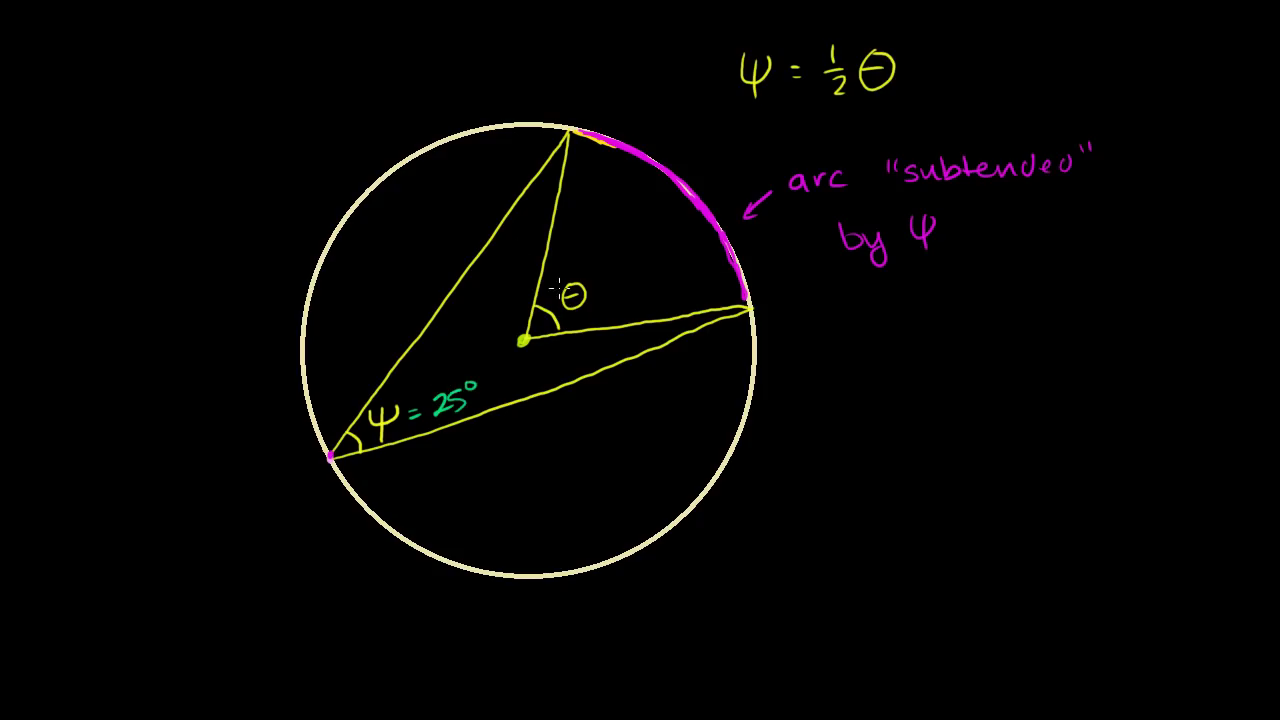 ψ = 1/2 θ
arc "subtended"
by ψ
θ
ψ = 25°